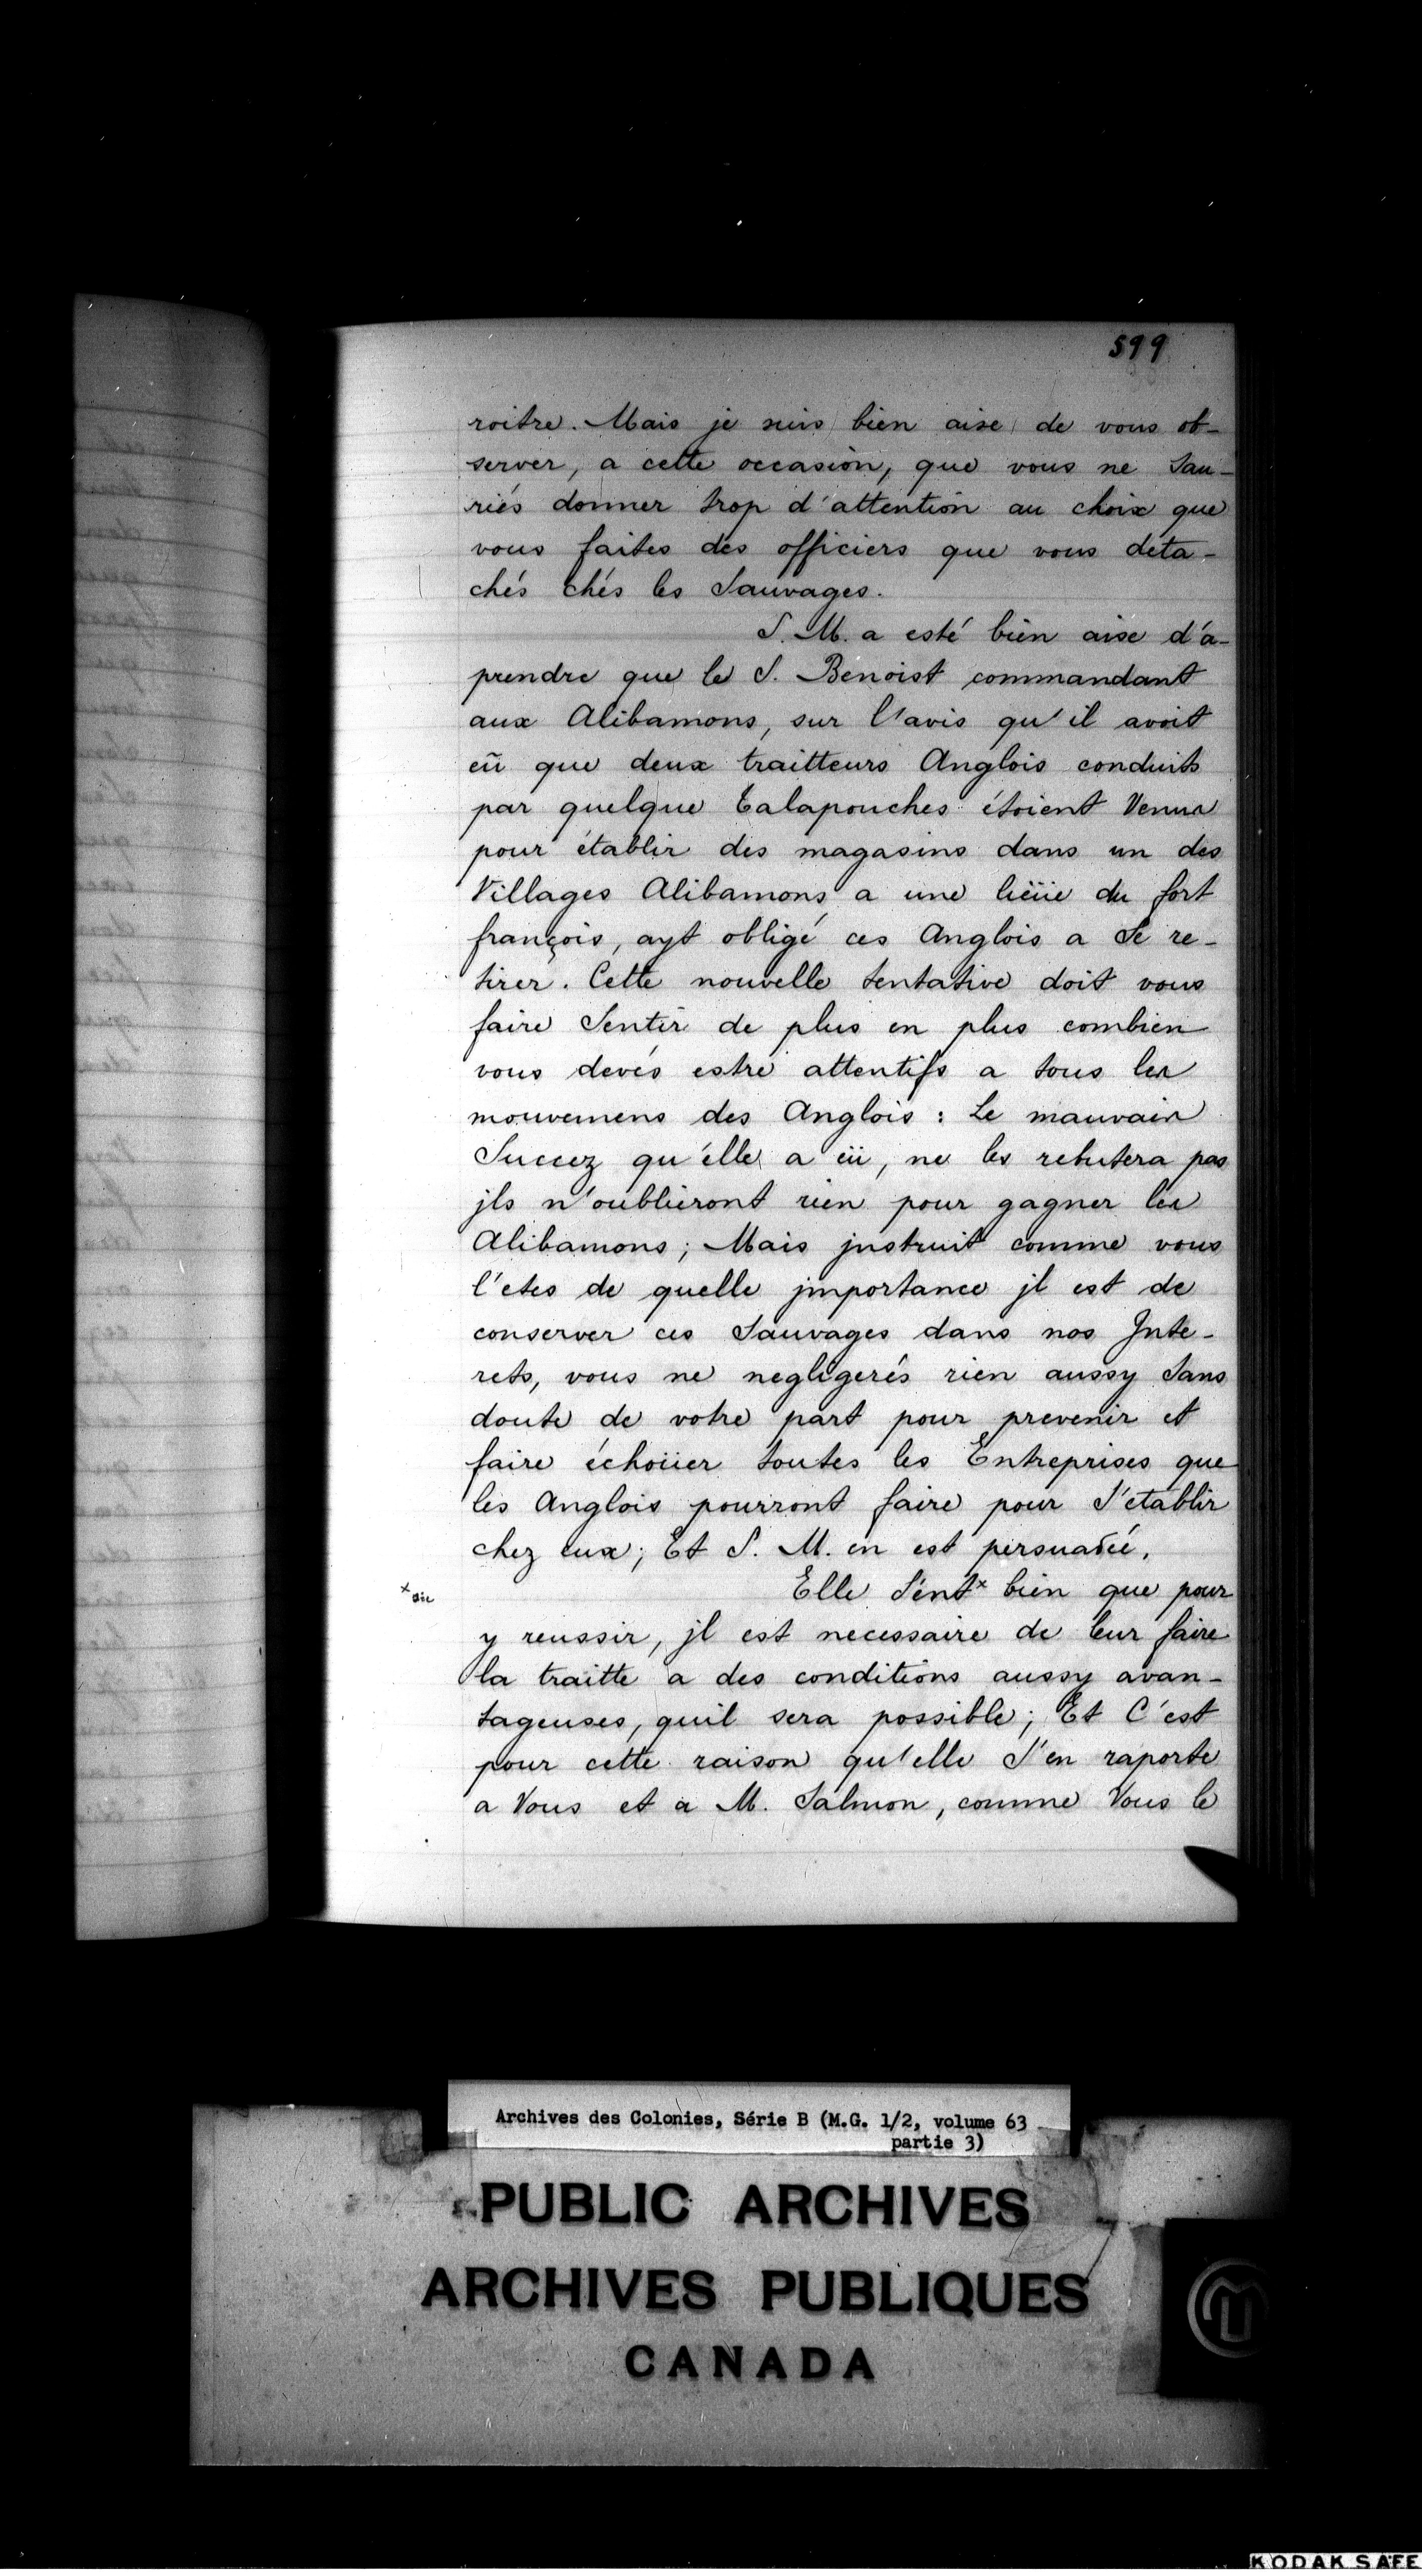 599
roitre. Mais je suis bien aise de vous ob-
server, a cette occasion, que vous ne Sau-
riés donner trop d'attention au choix que
vous faites des officiers que vous déta-
chés chés les Sauvages.
S. M. a esté bien aise d'a-
prendre que le S. Benoist commandant
aux Alibamons, sur l'avis qu'il avoit
eü que deux traitteurs Anglois conduits
par quelque Talapouches étoient Venus
pour établir des magasins dans un des
Villages Alibamons a une lieüe du fort
françois, ayt obligé ces Anglois a Se re-
tirer. Cette nouvelle tentative doit vous
faire Sentir de plus en plus combien
vous devés estre attentifs a tous les
mouvemens des Anglois : Le mauvais
Succez qu'elle a eü, ne les rebutera pas
jls n'oublieront rien pour gagner les
Alibamons; Mais jnstruit comme vous
l'etes de quelle jmportance jl est de
conserver ces Sauvages dans nos Jnte-
rets, vous ne negligerés rien aussy Sans
doute de votre part pour prevenir et
faire échoüer toutes les Entreprises que
les Anglois pourront faire pour S'établir
chez eux; Et S. M. en est persuadée.
Elle Sent x bien que pour
x sic
y reussir, jl est necessaire de leur faire
la traitte a des conditions aussy avan-
tageuses, quil sera possible; Et C'est
pour cette raison qu'elle S'en raporte
a Vous et a M. Salmon, comme Vous le
Archives des Colonies, Série B (M.G. 1/2, volume 63
partie 3)
PUBLIC ARCHIVES
ARCHIVES PUBLIQUES
CANADA
KODAK SAFE